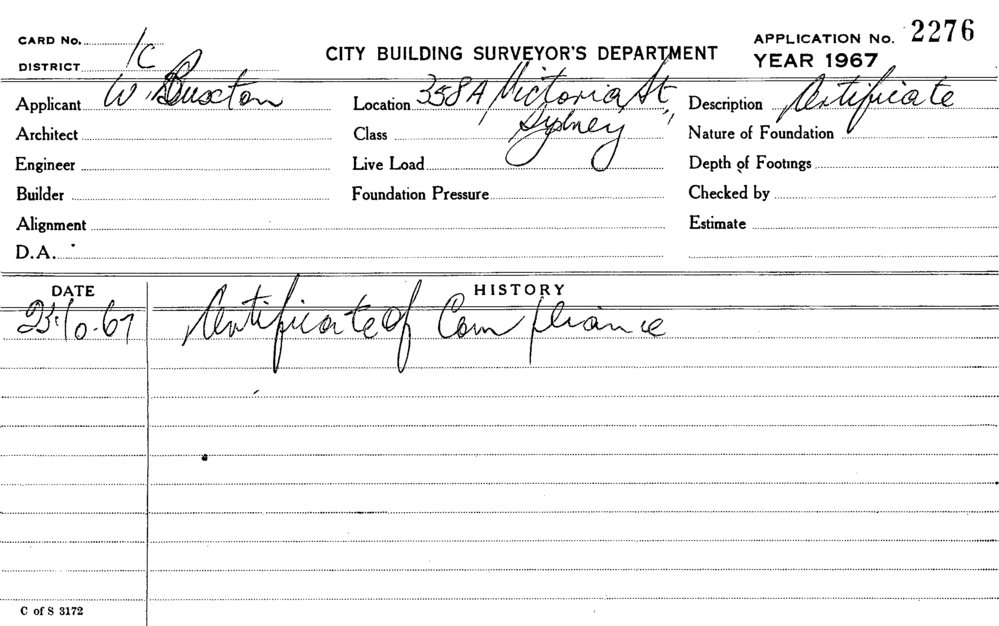 CARD No.
DISTRICT 1C
CITY BUILDING SURVEYOR'S DEPARTMENT
APPLICATION No. 2276
YEAR 1967
Applicant W. Buxton
Location 358A Victoria St,
Sydney
Description Certificate
Architect
Class
Nature of Foundation
Engineer
Live Load
Depth of Footings
Builder
Foundation Pressure
Checked by
Alignment
Estimate
D.A.
DATE
HISTORY
23.10.67 Certificate of Compliance
C of S 3172